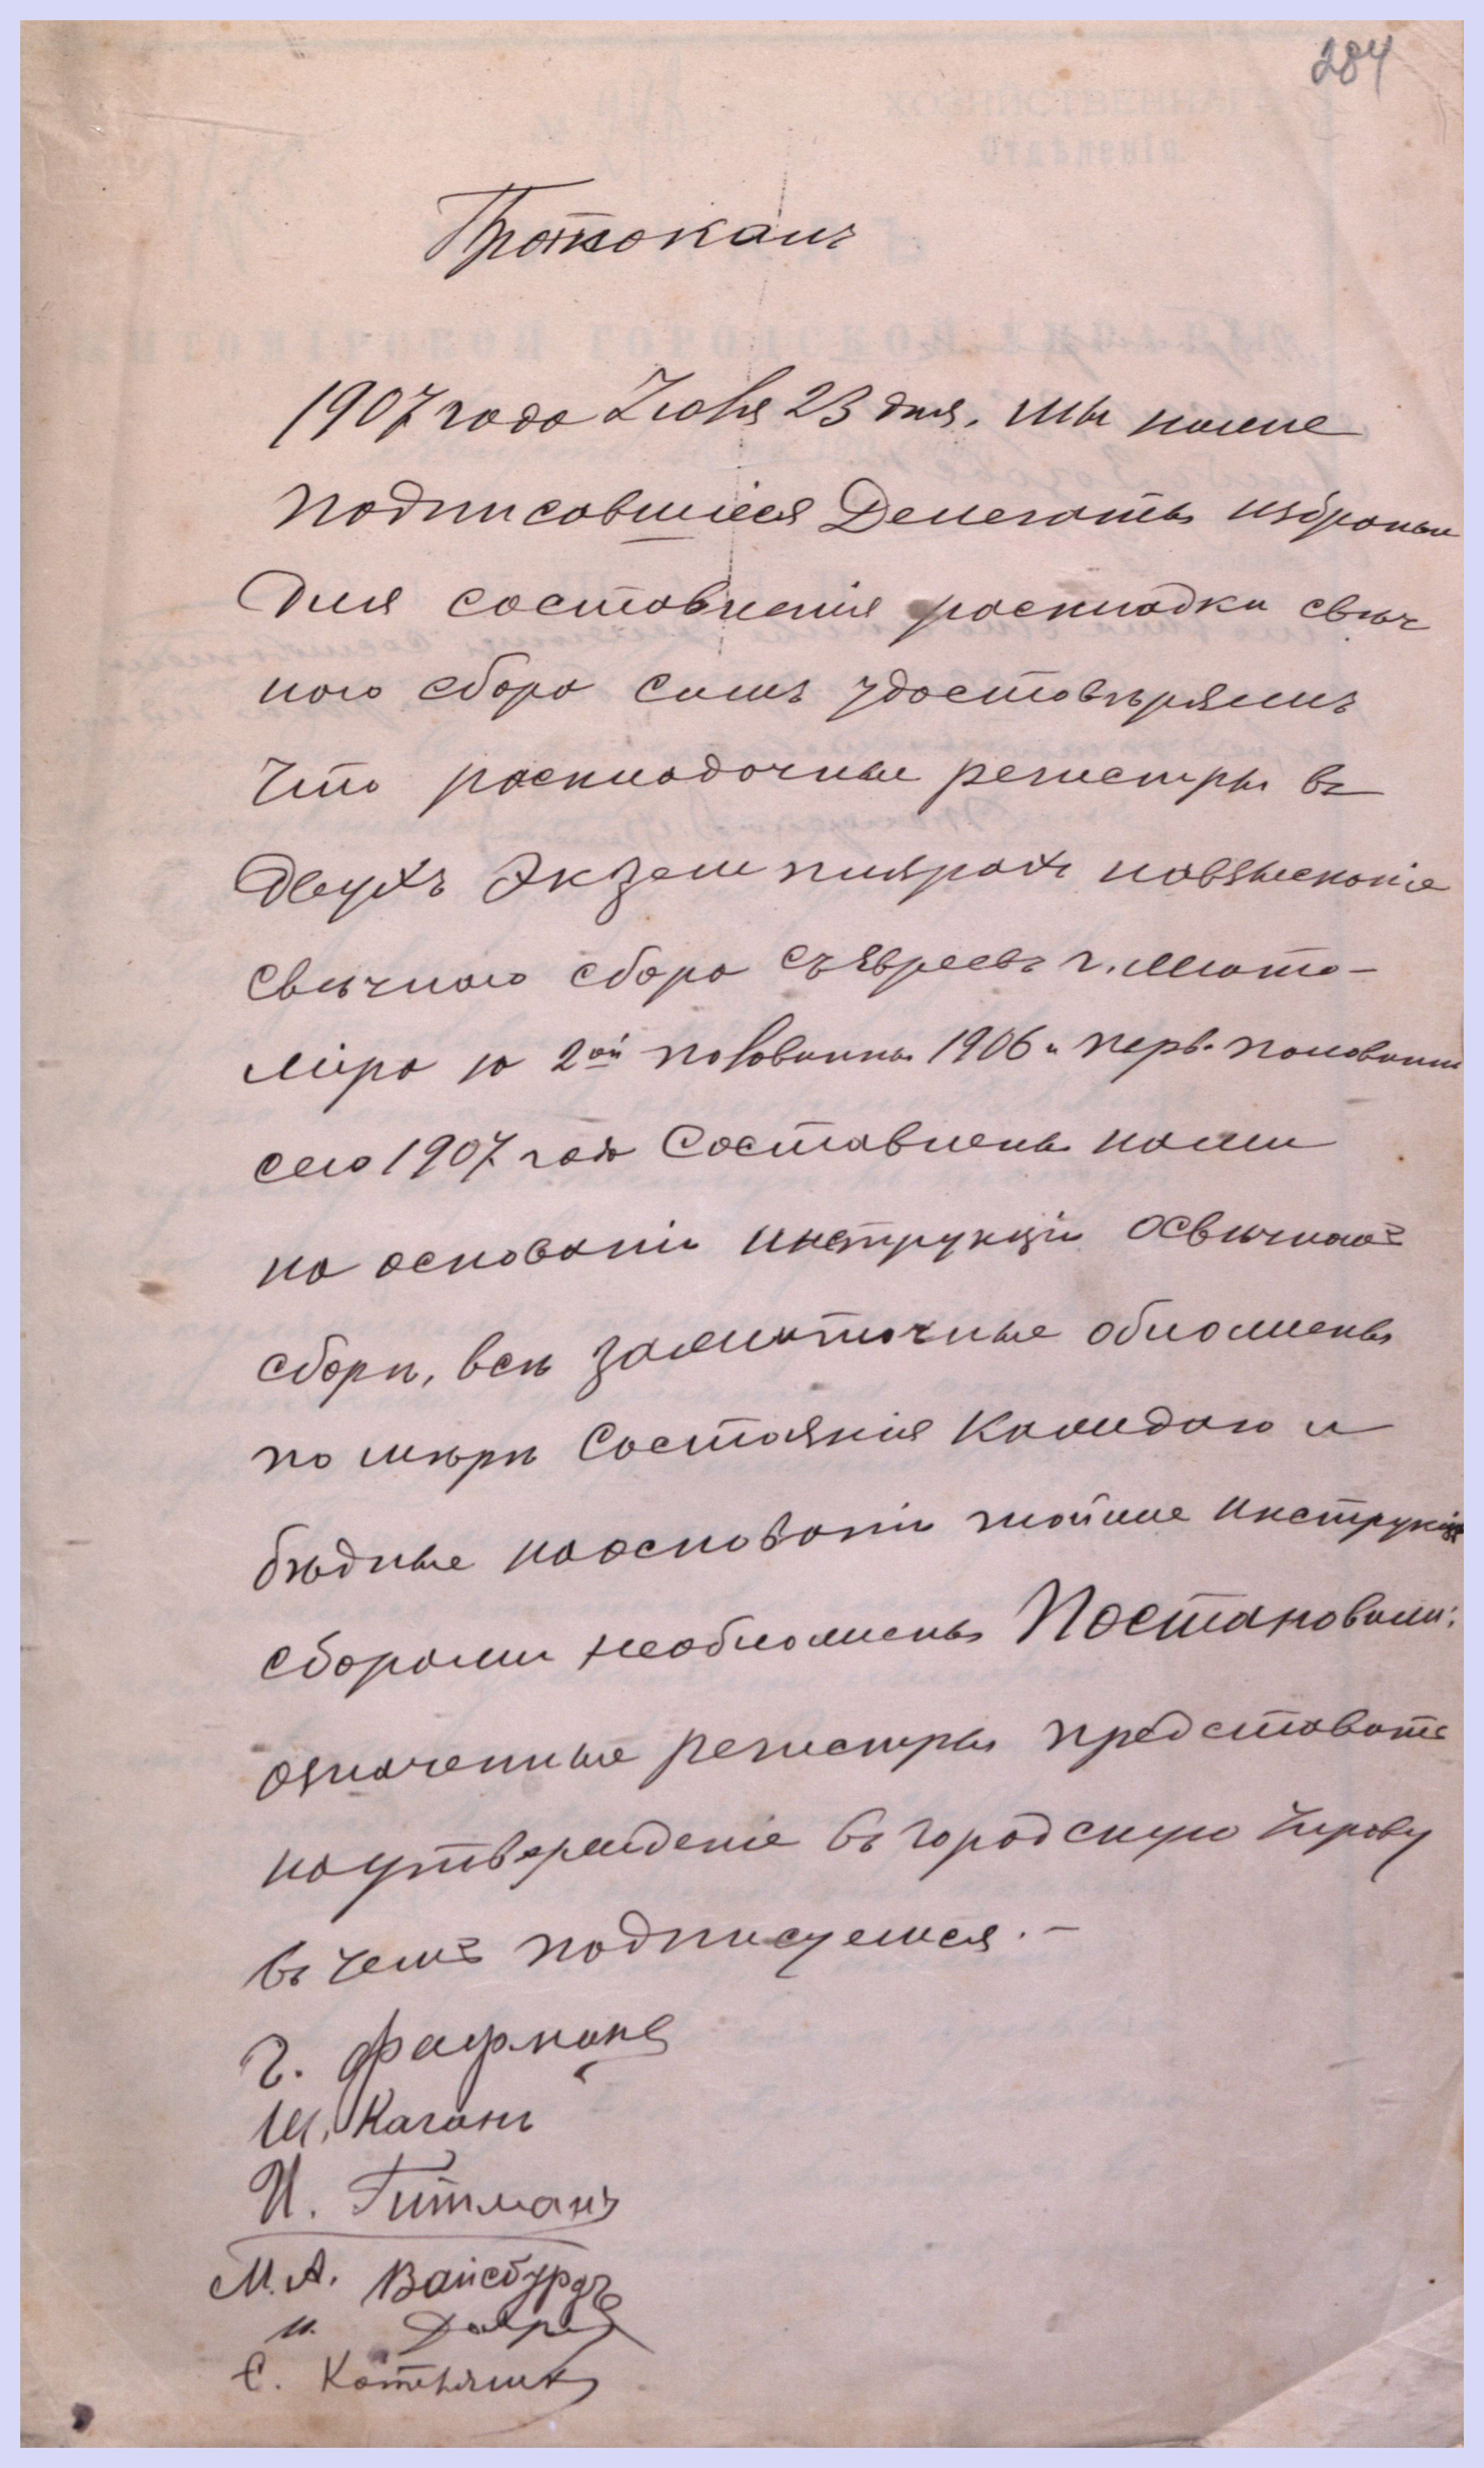 284
Протокалъ
1907 года Іюня 23 дня. мы ниже
подписавшіеся Делегаты избраны
для составленія раскладки свѣч
ного сбора симъ удостовѣряемъ
что раскладочные регистры въ
двухъ Экземплярахъ навзысканіе
свѣчного сбора съ Евреевъ г. Жито-
міра за 2ой половины 1906 и перв. половины
сего 1907 года Составлены нами
на основаніи инструкціи освѣчномъ
сборѣ, всѣ зажиточные обложены
по мѣрѣ Состоянія Каждаго и
бѣдные наоснованіи тойже инструкціи
сборами необложены Постановили:
означенные регистры представить
наутвержденіе въ городскую Управу
въ чемъ подписуемся. —
Г. Фаерманъ
Ш. Каганъ
И. Гитманъ
М. А. Вайсбурдъ
И.
С.